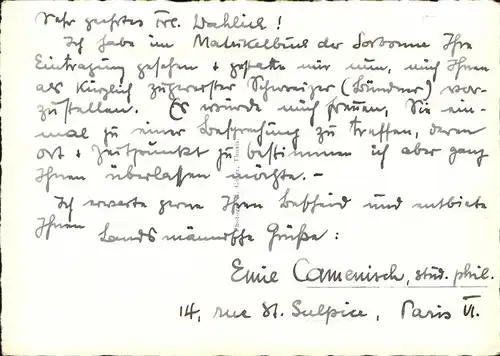 Sehr geehrtes Frl. Wahlich!
Ich habe im Matrikelbuch der Sorbonne Ihre
Eintragung gesehen + gestatte mir nun, mich Ihnen
als kürzlich zugereister Schweizer (Bündner) vor-
zustellen. Es würde mich freuen, Sie ein-
mal zu einer Besprechung zu treffen, deren
Ort + Zeitpunkt zu bestimmen ich aber ganz
Ihnen überlassen möchte. –
Ich erwarte gerne Ihren Bescheid und entbiete
Ihnen
Landsmännische Grüße:
Emil Camenisch, stud. phil.
14, rue St. Sulpice, Paris VI.